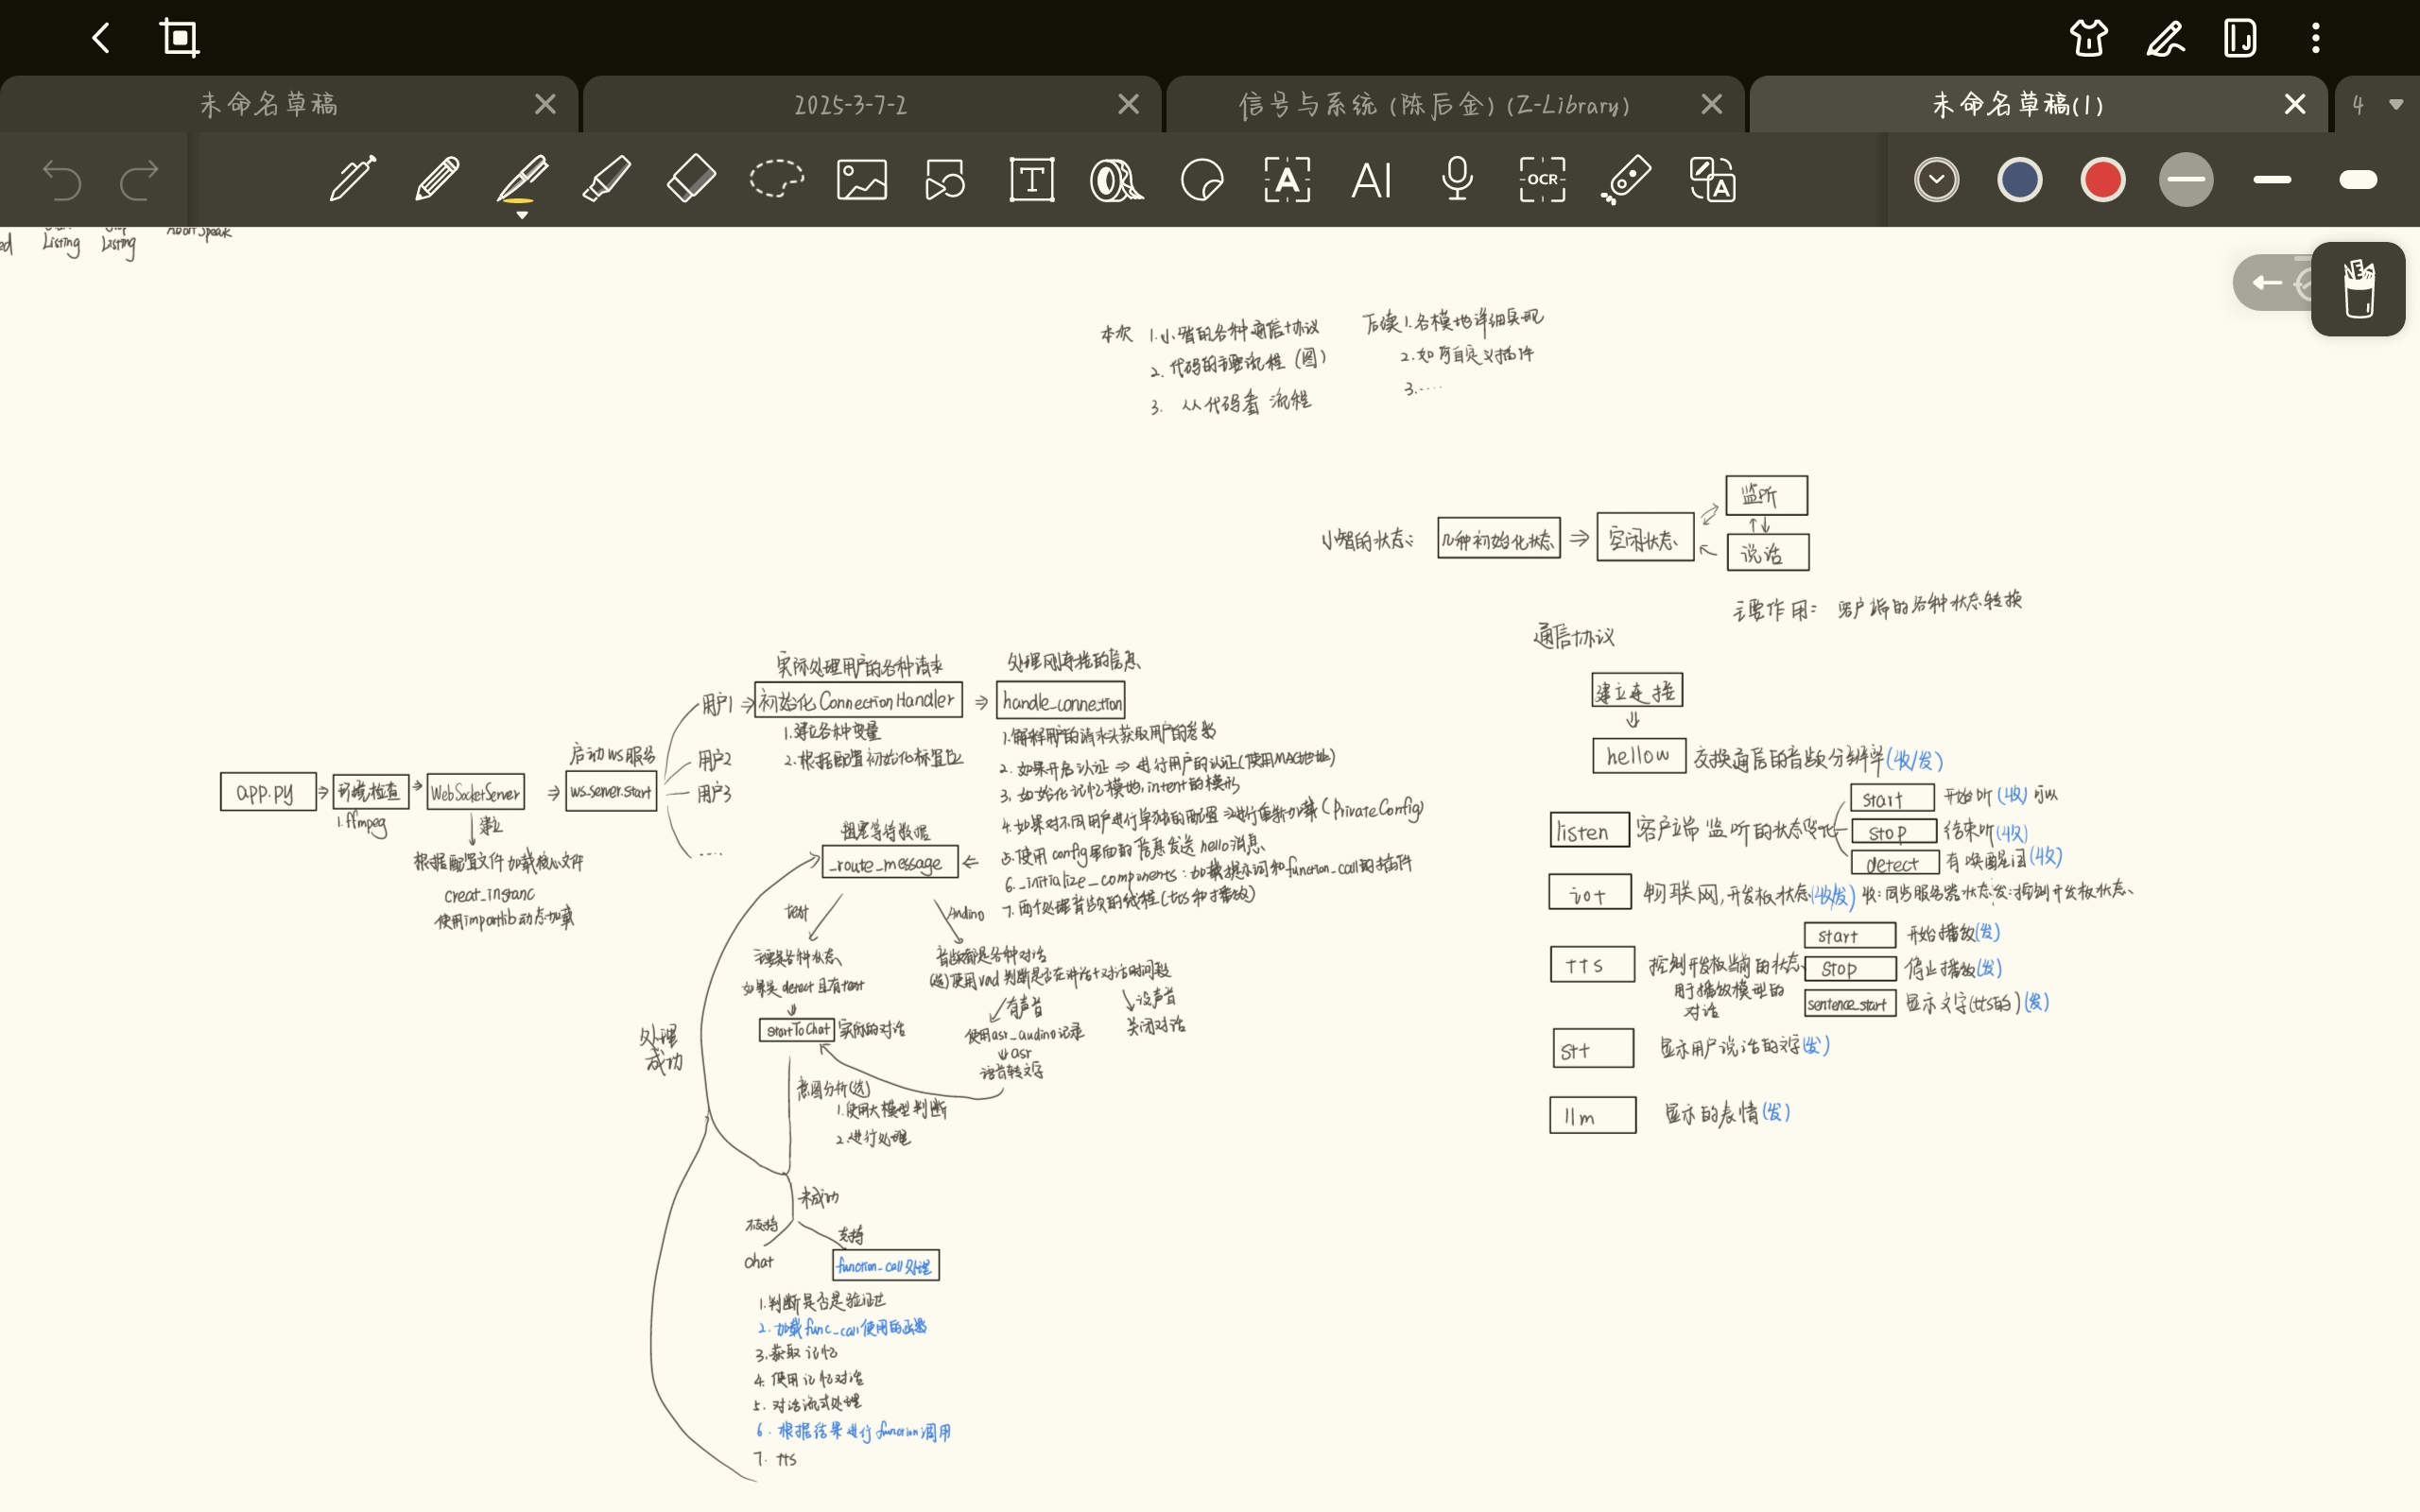 未命名草稿
2025-3-7-2
信号与系统 (陈后金) (Z-Library)
未命名草稿(1)
4
T
A
AI
OCR
A
Listing
Listing
Abort Speak
本次 1.小智的各种通信协议
2. 代码的主要流程 (图)
3. 从代码看 流程
后续 1.各模块详细实现
2.如何自定义插件
3.....
小智的状态:
几种初始化状态
空闲状态
监听
说话
主要作用: 客户端的各种状态转换
通信协议
建立连接
hellow
交换通信的音频分辨率(收/发)
listen
客户端 监听的状态变化
start
开始听 (收) 可以
stop
结束听(收)
detect
有唤醒词(收)
iot
物联网,开发板状态(收发) 收:同步服务器状态 发:控制开发板状态、
tts
控制开发板当前的状态
用于播放模型的
对话
start
开始播放(发)
stop
停止播放(发)
sentence_start
显示文字(tts的) (发)
stt
显示用户说话的文字(发)
llm
显示的表情(发)
app.py
环境检查
1.ffmpeg
WebSocketServer
建立
根据配置文件加载核心文件
creat_instanc
使用importlib动态加载
启动ws服务
ws_server.start
用户1
用户2
用户3
....
实际处理用户的各种请求
初始化 ConnectionHandler
1.建立各种变量
2.根据配置初始化标置位
处理刚连接的信息
handle_connettion
1.解释用户的请求头获取用户的参数
2. 如果开启认证 ⇒ 进行用户的认证(使用MAC地址)
3. 初始化记忆模块,intent的模形
4.如果对不同用户进行单独的配置⇒进行重新加载 (PrivateConfig)
5.使用 config里面的信息发送 hello消息
6._initialize_components: 加载提示词和function_call的插件
7. 两个处理音频的线程(tts和播放)
阻塞等待数据
_route_message
test
Audino
主要是各种状态
如果是 detect 且有text
startToChat
实际的对话
音频都是各种对话
(选)使用vad 判断是否在讲话+对话时间段
有声音
没声音
使用asr_audino记录
asr
语音转文字
关闭对话
处理
成功
意图分析(选)
1.使用大模型判断
2.进行处理
未成功
不支持
支持
chat
function_call 处理
1.判断是否是验证过
2. 加载func_call使用的函数
3.获取记忆
4. 使用记忆对话
5. 对话流式处理
6. 根据结果进行function调用
7. tts